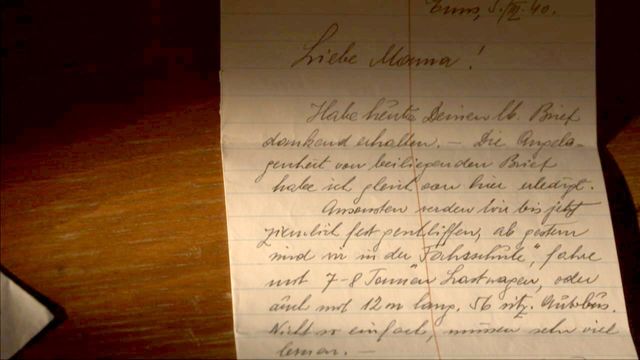 Enns, 5./III. 40.
Liebe Mamma!
Habe heute Deinen lb. Brief
dankend erhalten. — Die Angele-
genheit von beiliegenden Brief
habe ich gleich von hier erledigt.
Ansonsten werden wir bis jetzt
ziemlich fest geschliffen, ab gestern
sind wir in der "Fahrschule", fahre
mit 7-8 Tonnen Lastwagen, oder
auch mit 12 m lang. 56 sitz. Autobus.
Nicht so einfach, müssen sehr viel
lernen. —